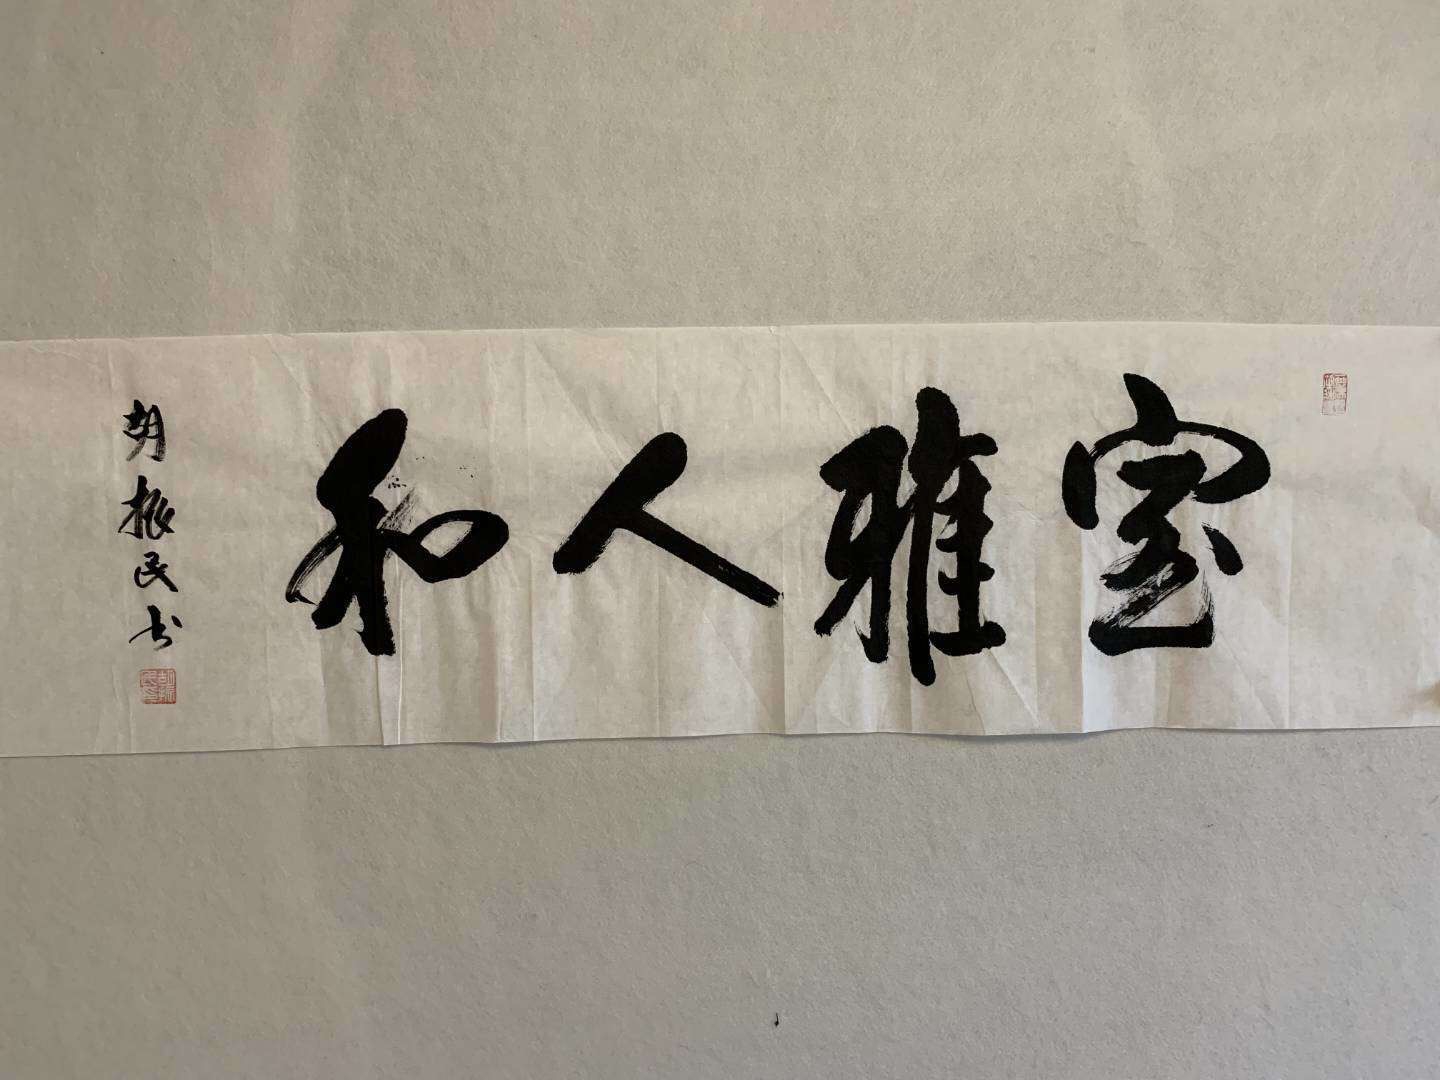 室雅人和
胡振民书